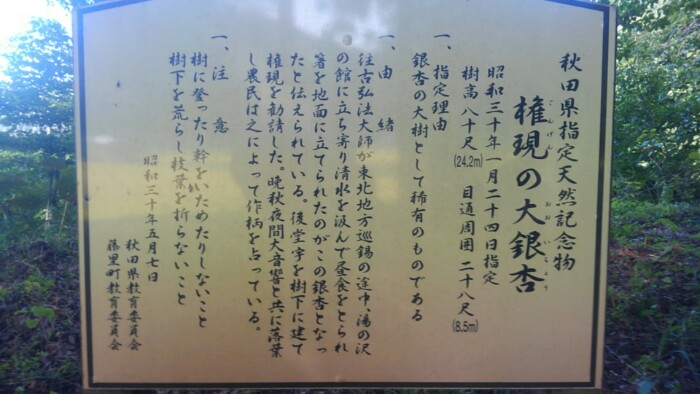 秋田県指定天然記念物
権現の大銀杏
ごんげん おおいちょう
昭和三十年一月二十四日指定
樹高 八十尺(24.2m) 目通周囲 二十八尺(8.5m)
一、指定理由
銀杏の大樹として稀有のものである
一、由緒
往古弘法大師が東北地方巡錫の途中、湯の沢
の館に立ち寄り清水を汲んで昼食をとられ
箸を地面に立てられたのがこの銀杏となっ
たと伝えられている。後堂宇を樹下に建て
権現を勧請した。晩秋夜間大音響と共に落葉
し農民は之によって作柄を占っている。
一、注意
樹に登ったり幹をいためたりしないこと
樹下を荒らし枝葉を折らないこと
昭和三十年五月七日
秋田県教育委員会
藤里町教育委員会